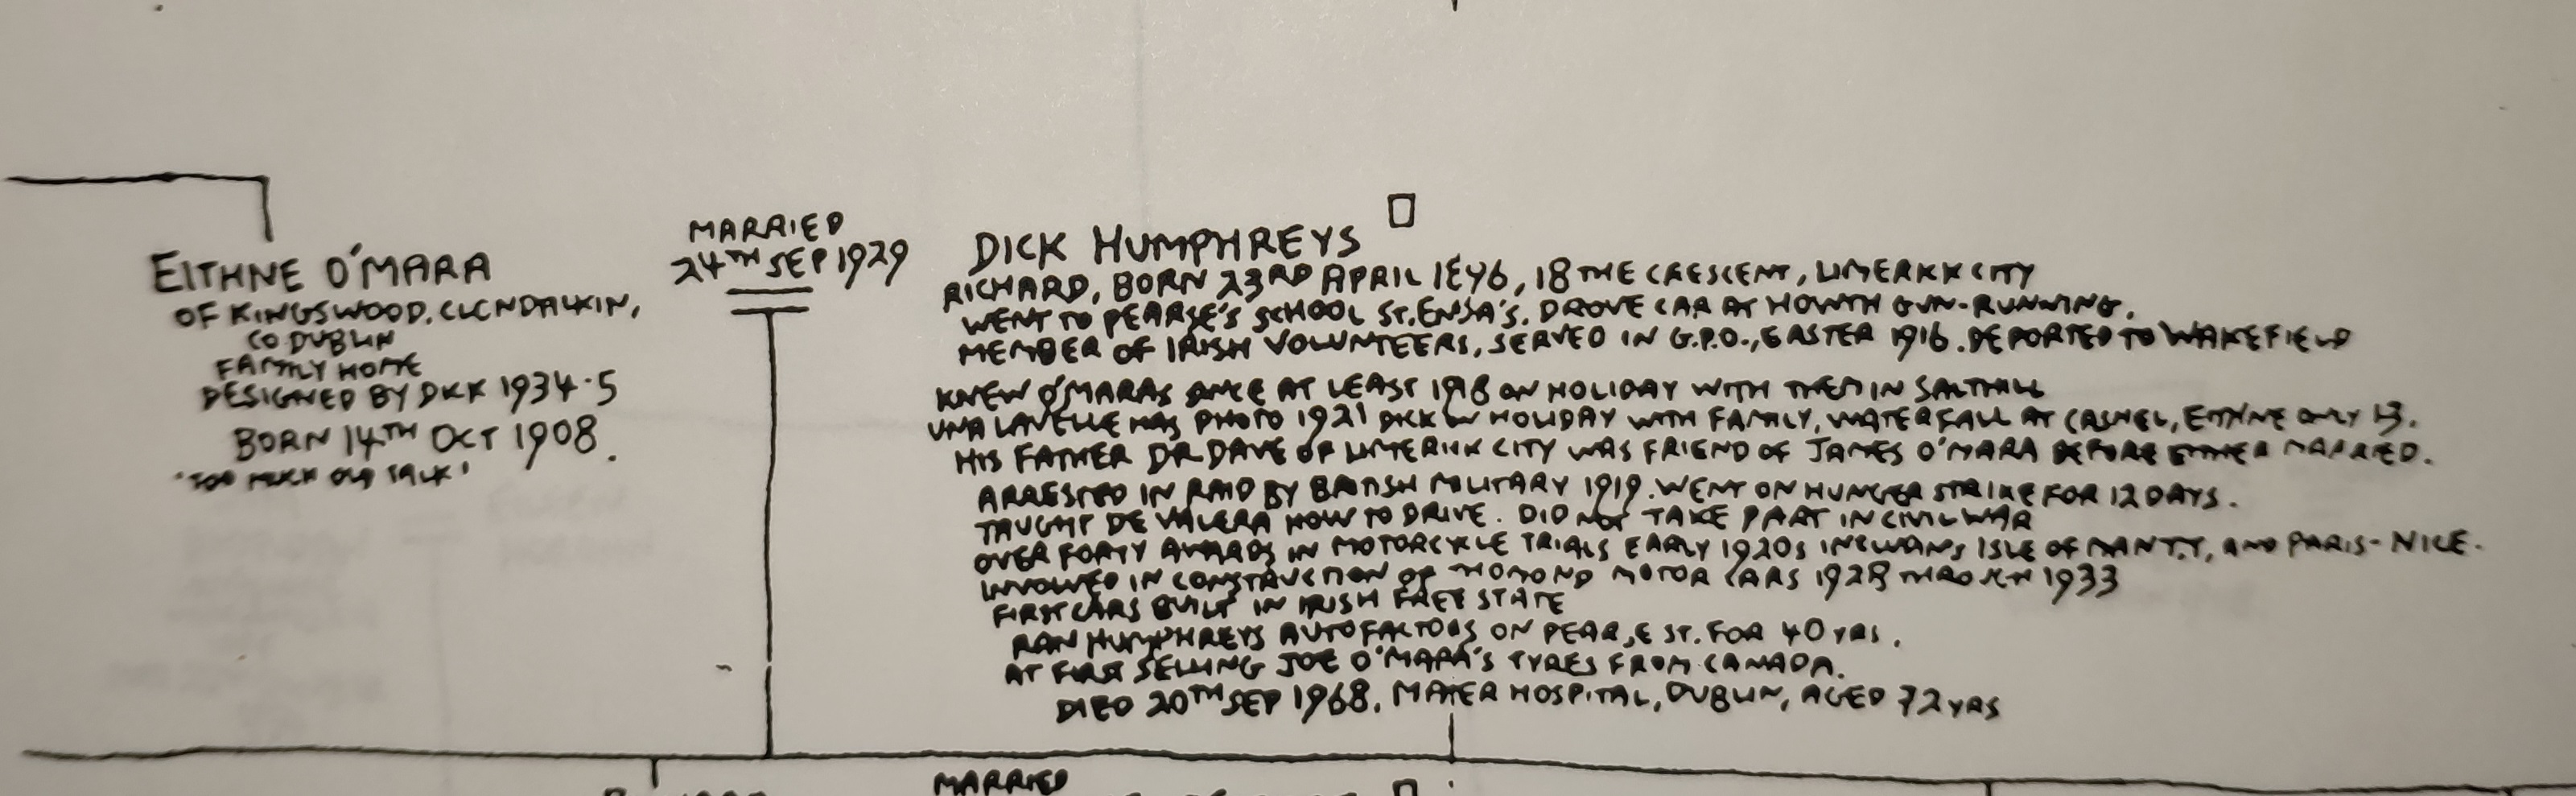 EITHNE O'MARA
OF KINGSWOOD, CLONDALKIN,
CO DUBLIN
FAMILY HOME
DESIGNED BY DICK 1934-5
BORN 14TH OCT 1908.
'TOO MUCH OLD TALK'
MARRIED
24TH SEP 1929
DICK HUMPHREYS
RICHARD, BORN 23RD APRIL 1896, 18 THE CRESCENT, LIMERICK CITY
WENT TO PEARSE'S SCHOOL ST. ENDA'S. DROVE CAR AT HOWTH GUN-RUNNING.
MEMBER OF IRISH VOLUNTEERS, SERVED IN G.P.O., EASTER 1916. DEPORTED TO WAKEFIELD
KNEW O'MARAS SINCE AT LEAST 1918 ON HOLIDAY WITH THEM IN SALTHILL
UNA LAVELLE HAS PHOTO 1921 DICK ON HOLIDAY WITH FAMILY, WATERFALL AT CASHEL, EITHNE ONLY 13.
HIS FATHER DR DAVE OF LIMERICK CITY WAS FRIEND OF JAMES O'MARA BEFORE EITHER MARRIED.
ARRESTED IN RAID BY BRITISH MILITARY 1919. WENT ON HUNGER STRIKE FOR 12 DAYS.
TAUGHT DE VALERA HOW TO DRIVE. DID NOT TAKE PART IN CIVIL WAR
OVER FORTY AWARDS IN MOTORCYCLE TRIALS EARLY 1920S INCLUDING ISLE OF MAN T.T, AND PARIS-NICE.
INVOLVED IN CONSTRUCTION OF THOMOND MOTOR CARS 1928 THROUGH 1933
FIRST CARS BUILT IN IRISH FREE STATE
RAN HUMPHREYS AUTOFACTORS ON PEARSE ST. FOR 40 YRS.
AT FIRST SELLING JOE O'MARA'S TYRES FROM CANADA.
DIED 20TH SEP 1968, MATER HOSPITAL, DUBLIN, AGED 72 YRS
MARRIED